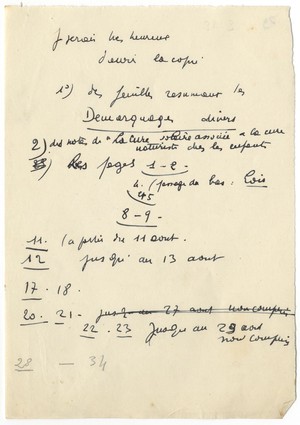 Je serais très heureux
d'avoir la copie
1°) des feuilles résumant les
Démarquages divers
2) des notes de "La cure solaire associée à la cure
naturiste chez les enfants
3) les pages 1 - 2 -
4. (passage du bas : Lois
45
8 - 9 -
11. (à partir du 11 aout.
12 jusqu'au 13 aout
17 . 18.
20. 21. jusqu'au 27 aout non compris
22. 23 jusque au 29 aout
non compris
28 — 34